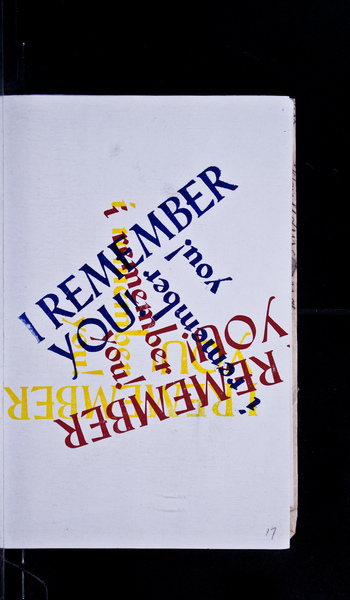 I REMEMBER
YOU!
i remember
you!
i remember
you!
i remember
you!
I REMEMBER
YOU!
REMEMBER
YOU!
17